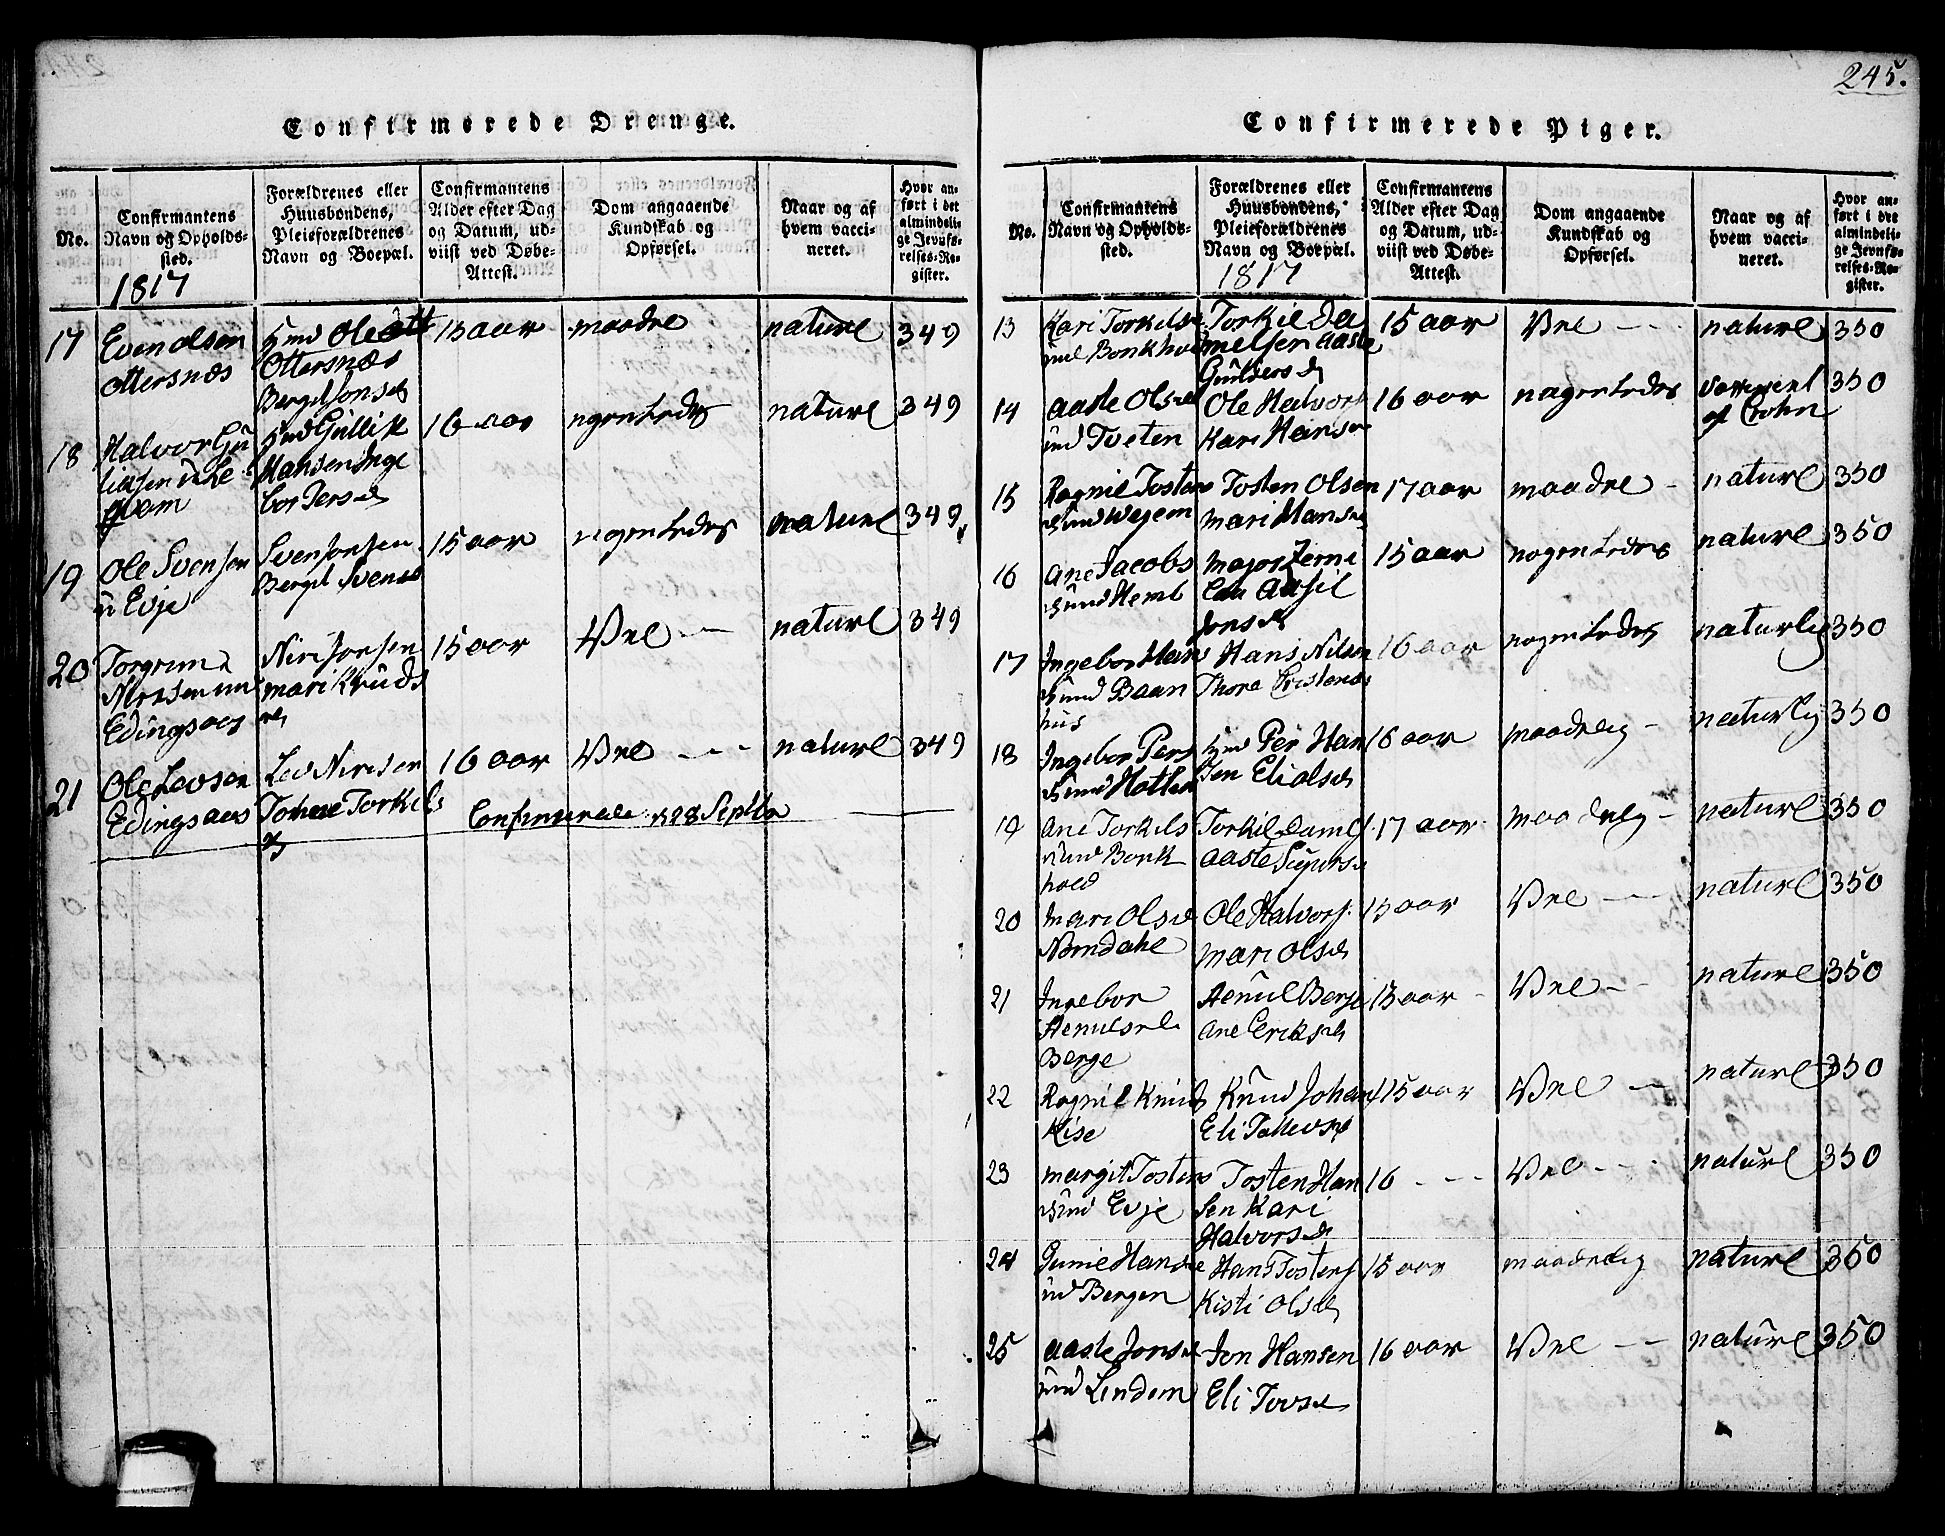 245.
Confirmerede Drenge.
No.
Confirmantens
Navn og Opholds-
sted.
1817
Forældrenes eller
Huusbondens,
Pleieforældrenes
Navn og Boepæl.
Confirmantens
Alder efter Dag
og Datum, ud-
viist ved Døbe-
Attest.
Dom angaaende
Kundskab og
Opførsel.
Naar og af
hvem vacci-
neret.
Hvor an-
ført i det
almindeli-
ge Jevnfø-
relses-Re-
gister.
17
Even Olsen
Ottersnæs
Ottersnæs
15 aar
maadel
naturl
349
18
Halvor Gu
Gullik
Hansen Inge
bor Persd
16 aar
nogenledes
naturl
349
19
Ole Svensen
Evje
Sven Jonsen
Bergit Svensd
15 aar
nogenledes
naturl
349
20
Torgrim
Edingsaas
Nirs Jonsen
Mari Knuds
15 aar
Vel
naturl
349
21
Ole Levsen
Edingsaas
Lev Nirsen
Torkils
16 aar
Vel
naturl
349
Confirmerede 28 Septbr
Confirmerede Piger.
No.
Confirmantens
Navn og Opholds-
sted.
Forældrenes eller
Huusbondens,
Pleieforældrenes
Navn og Boepæl.
1817
Confirmantens
Alder efter Dag
og Datum, ud-
viist ved Døbe-
Attest.
Dom angaaende
Kundskab og
Opførsel.
Naar og af
hvem vacci-
neret.
Hvor an-
ført i det
almindeli-
ge Jevnfø-
relses-Re-
gister.
13
Kari Torkilsd
Torkil Da
nielsen Aaste
15 aar
Vel
naturl
350
14
Aaste Olsd
Tveten
Ole Halvors
Kari Hansd
16 aar
nogenledes
af Crohn
350
15
Ragnil Tostens
Tosten Olsen
Mari Hansd
17 aar
maadel
naturl
350
16
Ane Jacobs
Major
Jonsd
15 aar
nogenledes
naturl
350
17
Ingebor Hans
Baan
hus
Hans Nilsen
16 aar
nogenledes
naturlig
350
18
Ingebor Pers
Per Han
sen Eli Olsd
16 aar
maadelig
naturlig
350
19
Ane Torkils
Bonk
hold
Torkil
Aaste Sigursd
17 aar
maadelig
naturl
350
20
Mari Olsd
Nomdahl
Ole Halvors.
Mari Olsd
15 aar
Vel
naturl
350
21
Ingebor
Berge
Berge
Ane Eriksd
15 aar
Vel
naturl
350
22
Ragnil Knuds
Kise
Knud Johan
Eli Tollevsd
15 aar
Vel
naturl
350
23
Margit Tostens
Evje
Tosten Han
sen Kari
Halvorsd
16
Vel
naturl
350
24
Gunil Hansd
Bergen
Hans Tostens
Kisti Olsd
15 aar
maadelig
naturl
350
25
Aaste Jonsd
Lindem
Jon Hansen
Eli Tovsd
16 aar
Vel
naturl
350